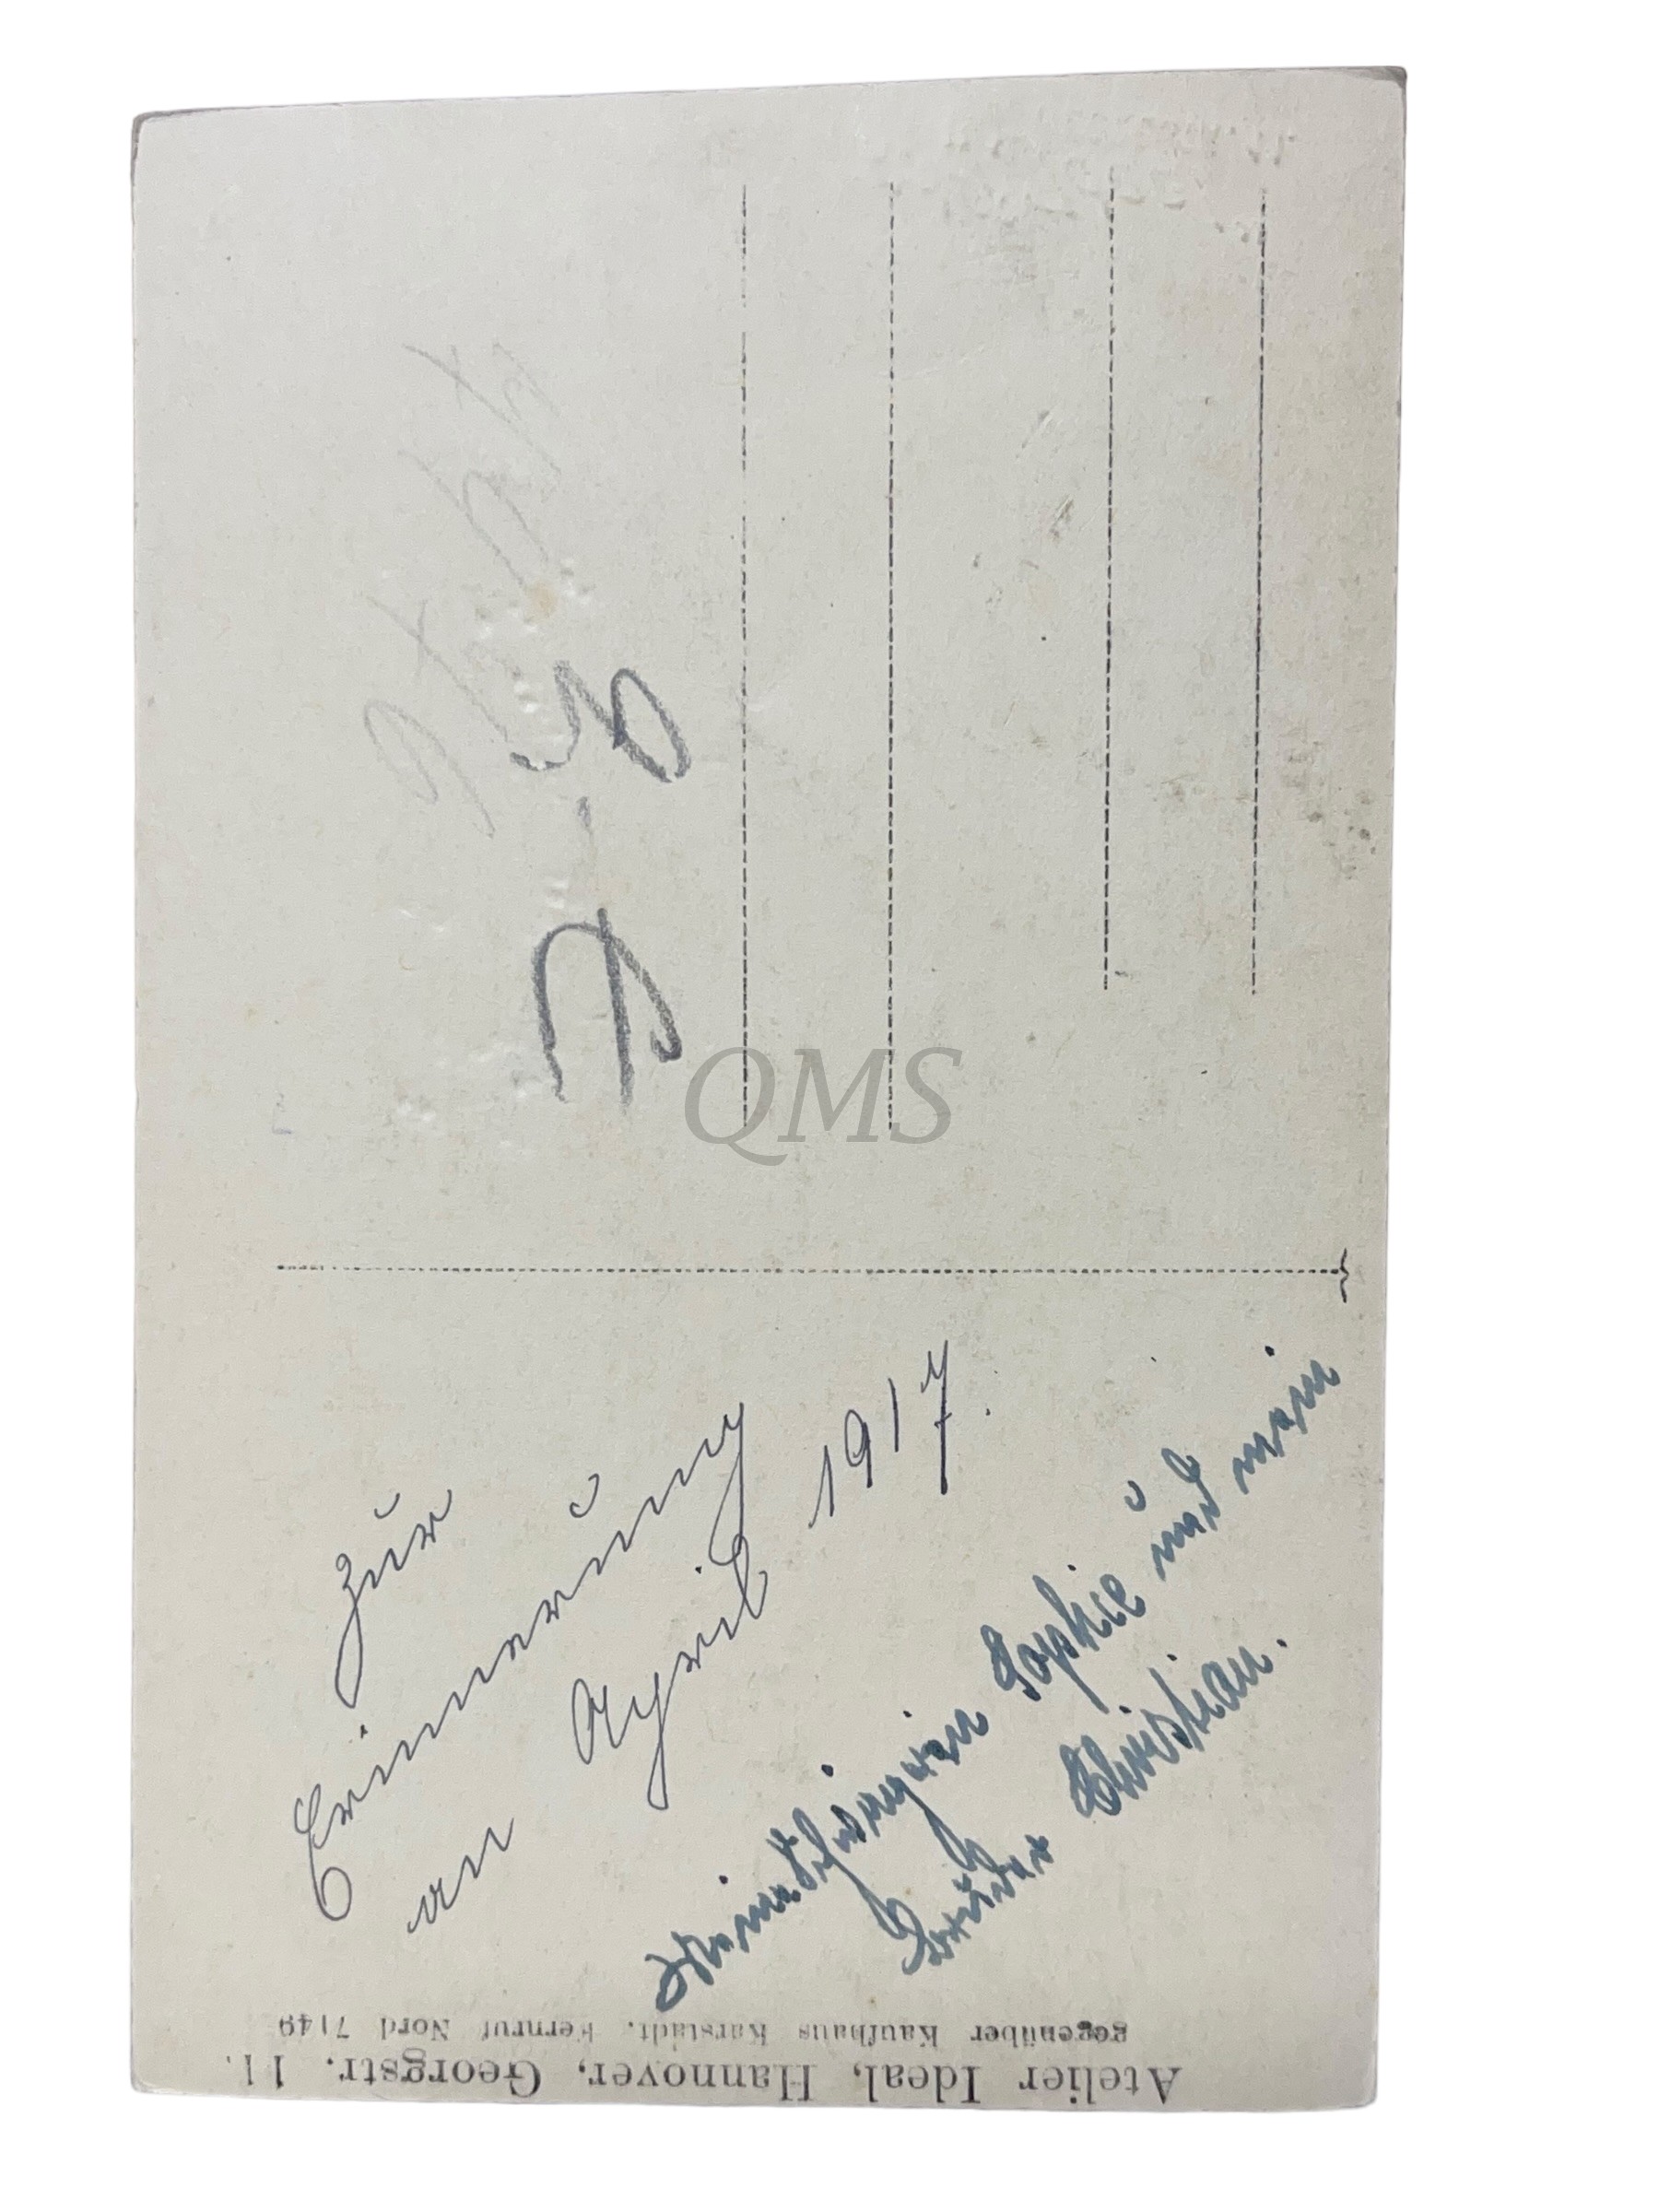 Zur
Erinnerung
an April 1917.
Meine Schwägerin Sophie und mein
Bruder Christian.
Atelier Ideal, Hannover, Georgstr. 11.
gegenüber Kaufhaus Karstadt. Fernruf Nord 7149
QMS